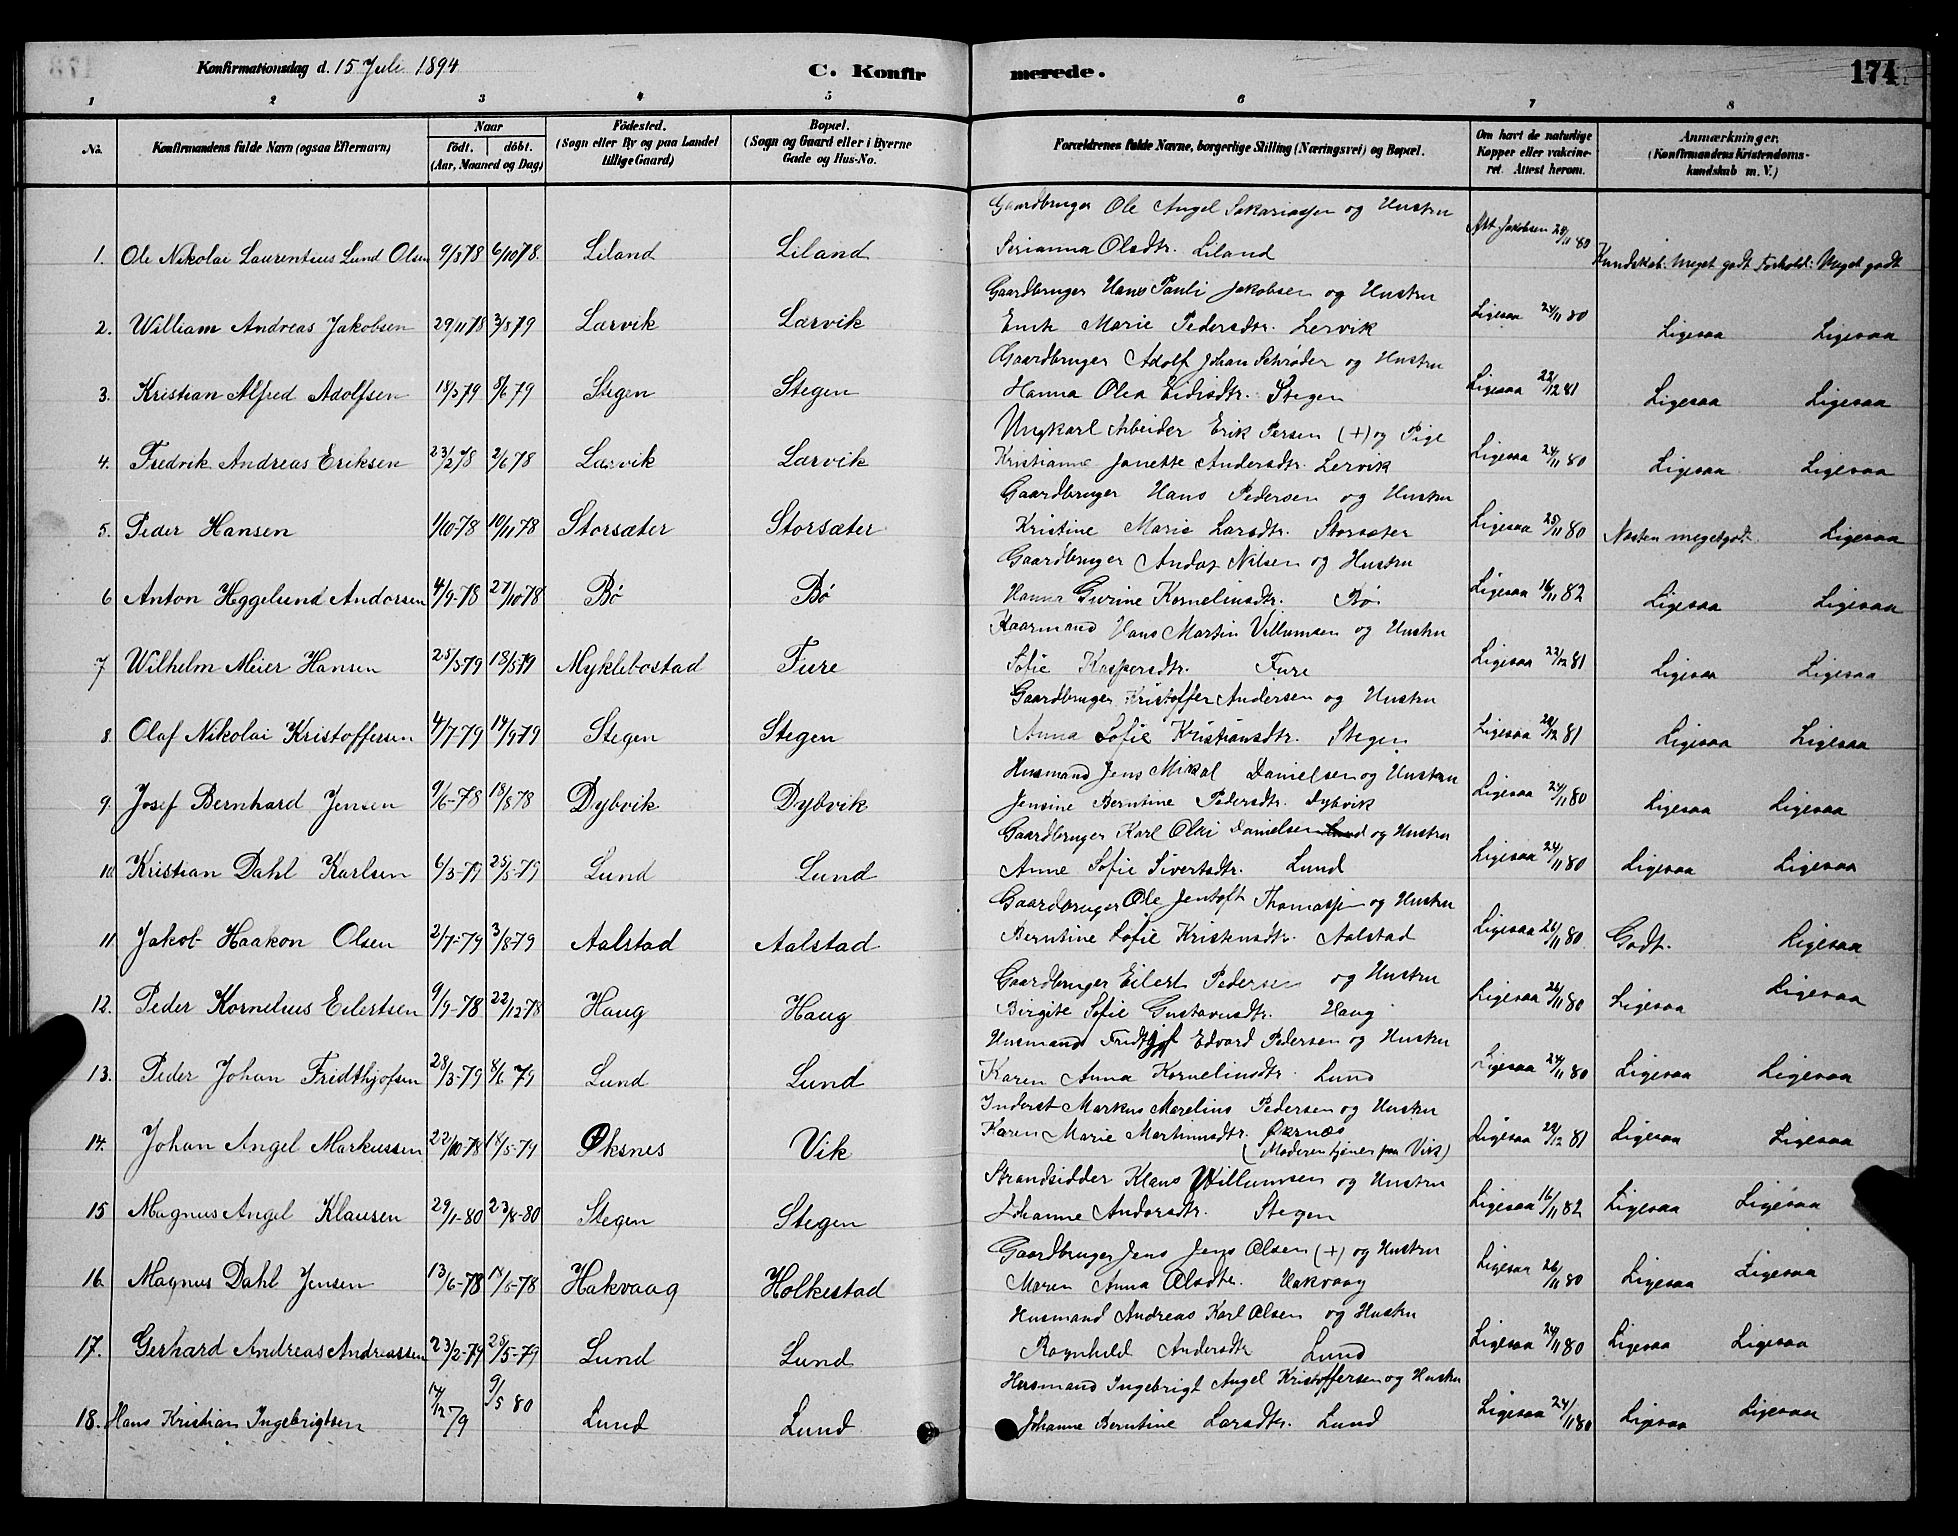 Konfirmationsdag d. 15 Juli 1894
C. Konfir merede. 174
1 2 3 4 5 6 7 8
No. Konfirmandens fulde Navn (ogsaa Efternavn) Naar født. døbt. (Aar, Maaned og Dag) Födested. (Sogn eller By og paa Landet tillige Gaard) Bopæl. (Sogn og Gaard eller i Byerne Gade og Hus-No. Forældrenes fulde Navne, borgerlige Stilling (Næringsvei) og Bopæl. Om havt de naturlige Kopper eller vakcineret. Attest herom. Anmærkninger. (Konfirmandens Kristendomskundskab m. V.)
Gaardbruger Ole Angel Sakariassen og Hustru
1. Ole Nikolai Laurentius Lund Olsen 9/8 78 6/10 78. Liland Liland Serianna Olsdtr. Liland Att Jakobsen 24/11 80 Kundskab. Meget godt Forhold: Meget godt
Gaardbruger Hans Pauli Jakobsen og Hustru
2. William Andreas Jakobsen 29/11 78 3/8 79 Larvik Larvik Marie Pedersdtr. Lervik Ligesaa 24/11 80 Ligesaa Ligesaa
Gaardbruger Adolf Johan Schrøder og Hustru
3. Kristian Alfred Adolfsen 18/3 79 8/6 79 Stegen Stegen Hanna Olea Stegen Ligesaa 22/12 81 Ligesaa Ligesaa
Ungkarl Arbeider Erik Persen (+) og Pige
4. Fredrik Andreas Eriksen 23/2 78 2/6 78 Larvik Larvik Kristianne Janette Andersdtr. Lervik Ligesaa 24/11 80 Ligesaa Ligesaa
Gaardbruger Hans Pedersen og Hustru
5. Peder Hansen 1/10-78 10/11 78 Storsæter Storsæter Kristine Marie Larsdtr. Storsæter Ligesaa 25/11 80 Næsten meget godt Ligesaa
Gaardbruger Andor Nilsen og Hustru
6 Anton Heggelund Andorsen 4/9-78 27/10-78 Bö Bö Hanna Gurine Korneliusdtr. Bö Ligesaa 16/11 82 Ligesaa Ligesaa
Kaarmand Hans Martin Villumsen og Hustru
7 Wilhelm Meier Hansen 25/3-79 18/5-79 Myklebostad Fure Sofie Kaspersdtr. Fure Ligesaa 22/12 81 Ligesaa Ligesaa
Gaardbruger Kristoffer Andersen og Hustru
8. Olaf Nikolai Kristoffersen 4/7-79 14/9-79 Stegen Stegen Anna Sofie Kristiansdtr. Stegen Ligesaa 20/12 81 Ligesaa Ligesaa
Husmand Jens Mikal Danielsen og Hustru
9. Josef Bernhard Jensen 9/6-78 18/8 78 Dybvik Dybvik Jensine Berntine Pedersdtr. Dybvik Ligesaa 24/11 80 Ligesaa Ligesaa
Gaardbruger Karl Olai Danielsen og Hustru
10. Kristian Dahl Karlsen 6/3-79 25/5-79 Lund Lund Anne Sofie Sivertsdtr. Lund Ligesaa 24/11 80 Ligesaa Ligesaa
Gaardbruger Ole Jentoft Thomassen og Hustru
11 Jakob Haakon Olsen 2/7-79 3/8-79 Aalstad Aalstad Berntine Sofie Kristensdtr. Aalstad Ligesaa 26/11 80 Godt. Ligesaa
Gaardbruger Eilert Pedersen og Hustru
12. Peder Kornelius Eilertsen 9/9-78 22/12-78 Haug Haug Birgite Sofie Gustavusdtr. Haug Ligesaa 26/11 80 Ligesaa Ligesaa
Husmand Fridtjof Edvard Pedersen og Hustru
13. Peder Johan Fridthjofsen 28/3-79 8/6 79 Lund Lund Karen Anna Korneliusdtr. Lund Ligesaa 24/11 80 Ligesaa Ligesaa
Inderst Markus Marelius Pedersen og Hustru
14. Johan Angel Markussen 22/10-78 18/5-79 Øksnes Vik Karen Marie Martinusdtr. Øksnæs Ligesaa 20/12 81 Ligesaa Ligesaa
(Moderen tjener paa Vik)
Strandsidder Klaus Willumsen og Hustru
15 Magnus Angel Klausen 29/1-80 23/8-80 Stegen Stegen Johanne Andorsdtr. Stegen Ligesaa 16/11 82 Ligesaa Ligesaa
Gaardbruger Jens Jens Olsen (+) og Hustru
16. Magnus Dahl Jensen 13/6-78 Hakvaag Holkestad Maren Anna Olsdtr. Hakvaag Ligesaa 26/11 80 Ligesaa Ligesaa
Husmand Andreas Karl Olsen og Hustru
17. Gerhard Andreas Andreassen 23/2-79 25/5-79 Lund Lund Ragnhild Andersdtr Lund Ligesaa 24/11 80 Ligesaa Ligesaa
Husmand Ingebrigt Angel Kristoffersen og Hustru
18. Hans Kristian Ingebrigtsen 14/12 79 9/5 80 Lund Lund Johanne Berntine Larsdtr. Lund Ligesaa 24/11 80 Ligesaa Ligesaa